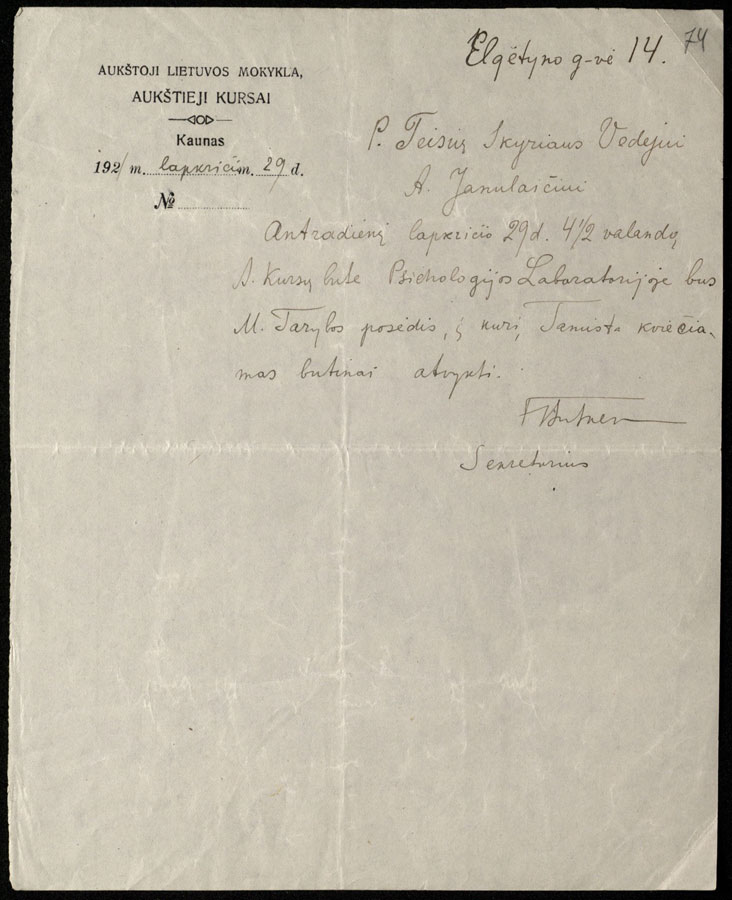 Elgėtyno g-vė 14.
74
AUKŠTOJI LIETUVOS MOKYKLA,
AUKŠTIEJI KURSAI
Kaunas
1921 m. lapkričio m. 29 d.
№
P. Teisių Skyriaus Vedėjui
A. Janulaičiui
Antradienį lapkričio 29 d. 4 1/2 valandų
A. Kursų bute Psichologijos Laboratorijoje bus
M. Tarybos posėdis, į kurį Tamista kviečia-
mas butinai atvykti.
Sekretorius